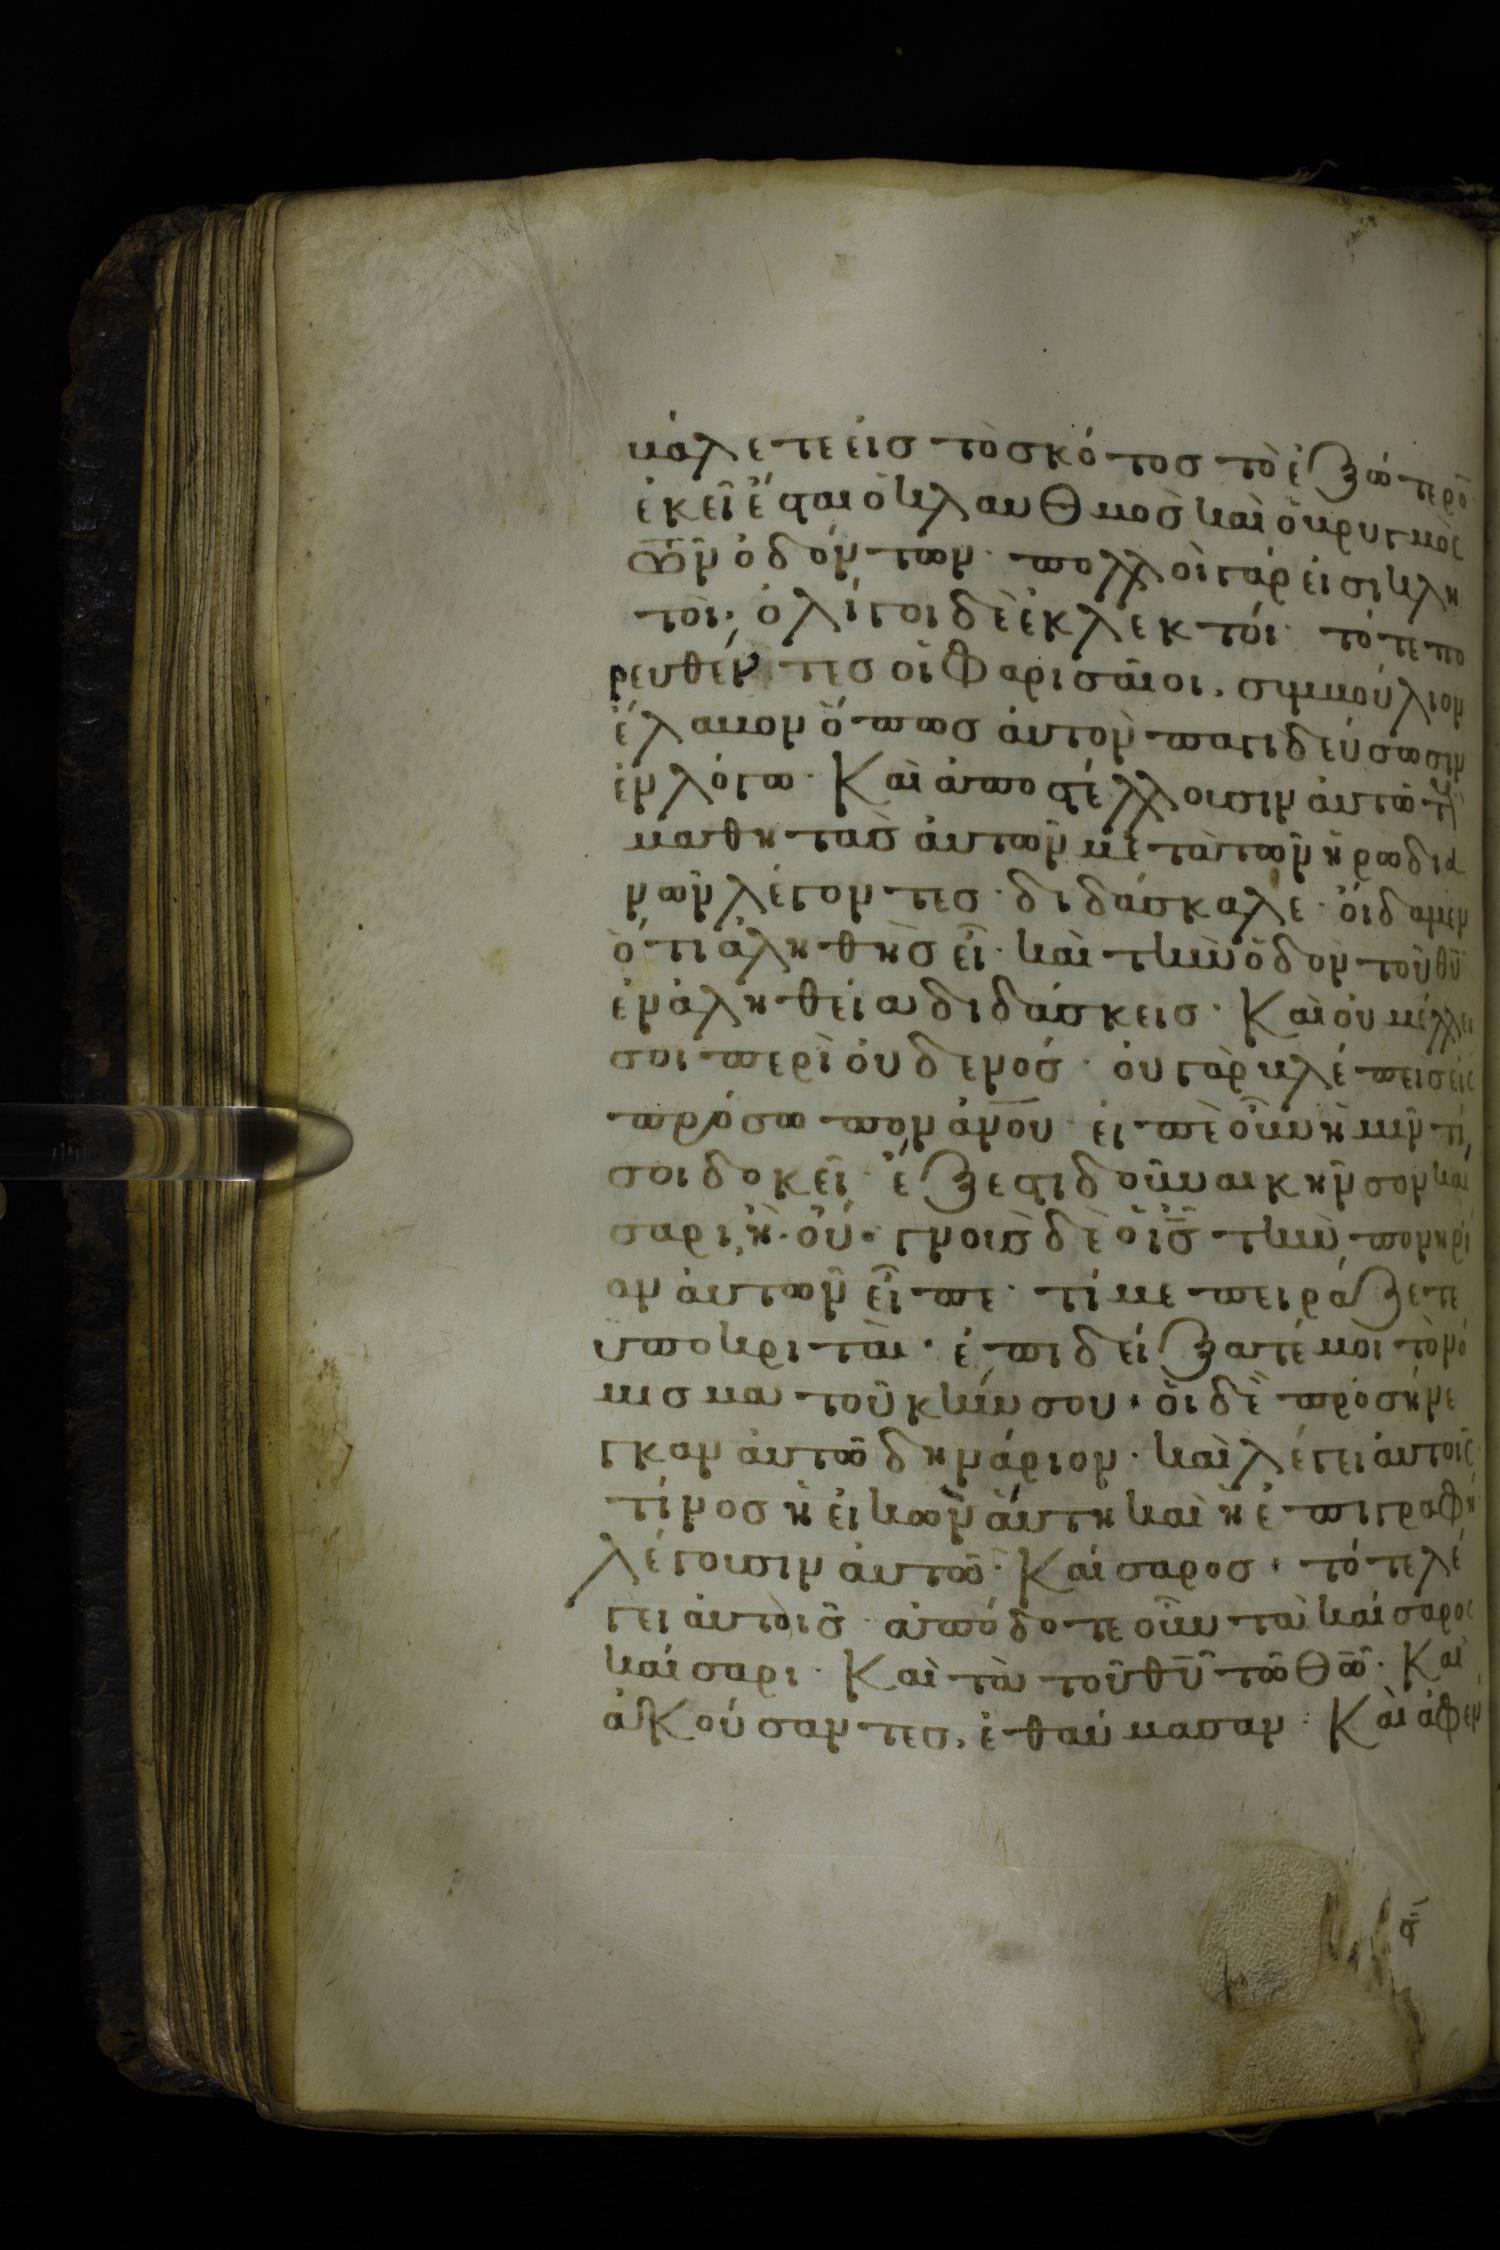 βάλετε εἰσ τὸ σκότοσ τὸ ἐξώτερο̅
ἐκεῖ ἔσται ὁ κλαυθμοσ καὶ ὁ βρυγμὸς
τῶν ὀδόντων· πολλοὶ γάρ εἰσι κλη
τοὶ· ὀλίγοι δὲ ἐκλεκτόι· τότε πο
ρευθέντεσ οἱ Φαρισαῖοι, συμβούλιον
ἔλαβον ὅπωσ ἀυτον παγιδεύσωσιν
ἐν λόγω· Καὶ ἀποστέλλουσιν ἀυτῶ τοὺς
μαθητασ ἀυτῶν μετὰ τῶν ἡρωδια
νῶν λέγοντεσ· διδάσκαλε· ὀίδαμεν
ὅτι ἀληθὴσ εἶ· καὶ τὴν ὁδον τοῦ θῦ
ἐν ἀληθεία διδάσκεισ· Καὶ ὀυ μέλλει
σοι περὶ ὀυδενόσ· ὀυ γὰρ βλέπεισ εἰς
πρόσωπον ἀν̅ο̅υ̅· ἐιπὲ οὖν ἡμῖν τί
σοι δοκεῖ· ἔξεστι δοῦναι κῆνσον καί
σαρι, ἢ οὔ· γνοὺσ δὲ ὁ ι̅σ̅ τὴν πονηρί
αν ἀυτῶν εἶπε· τί με πειράζετε
ὑποκριτὰι· ἐπιδείξατέ μοι τὸ νό
μισμα τοῦ κήνσου· ὁι δὲ προσήνε
γκαν ἀυτῶ δηνάριον· καὶ λέγει ἀυτοῖς
τίνοσ ἡ εἰκὼν ἅυτη καὶ ἡ ἐπιγραφή·
λέγουσιν ἀυτῶ· Καίσαροσ· τότε λέ
γει ἀυτοῖσ· ἀπόδοτε οὖν τὰ καίσαρος
καίσαρι· Καὶ τὰ τοῦ θ̅υ̅ τῶ θ̅ω̅· Καὶ
ἀκούσαντεσ, ἐθαύμασαν· Καὶ ἀφέν